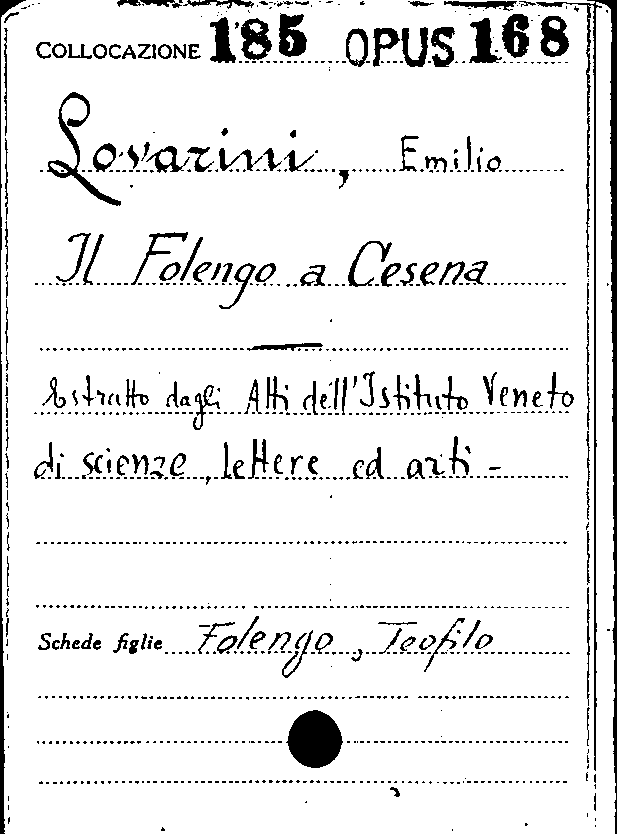 COLLOCAZIONE 185 OPUS 168
Lovarini, Emilio
Il Folengo a Cesena
Estratto dagli Atti dell'Istituto Veneto
di scienze, lettere ed arti -
Schede figlie Folengo, Teofilo